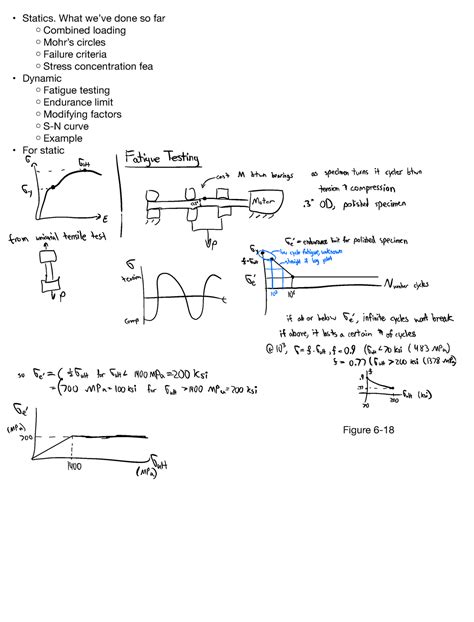 • Statics. What we've done so far
○ Combined loading
○ Mohr's circles
○ Failure criteria
○ Stress concentration fea
• Dynamic
○ Fatigue testing
○ Endurance limit
○ Modifying factors
○ S-N curve
○ Example
• For static
σ
σult
σy
ε
from uniaxial tensile test
P
Fatigue Testing
const M btwn bearings
Motor
P
as specimen turns it cycles btwn
tension & compression
.3" OD, polished specimen
σ
tension
comp
t
σe' = endurance limit for polished specimen
low cycle fatigue, unknown
straight if log plot
f·σult
σe'
10³
10⁶
Number cycles
if at or below σe', infinite cycles wont break
if above, it lasts a certain # of cycles
@ 10³, σ = f·σult, f = 0.9 (σult < 70 ksi (483 MPa)
f = 0.77 (σult > 200 ksi (1378 MPa)
f
σult (ksi)
70
200
so σe' = { ½ σult for σult < 1400 MPa = 200 ksi
= { 700 MPa = 100 ksi for σult > 1400 MPa = 200 ksi
σe'
(MPa)
700
1400
σult
(MPa)
Figure 6-18